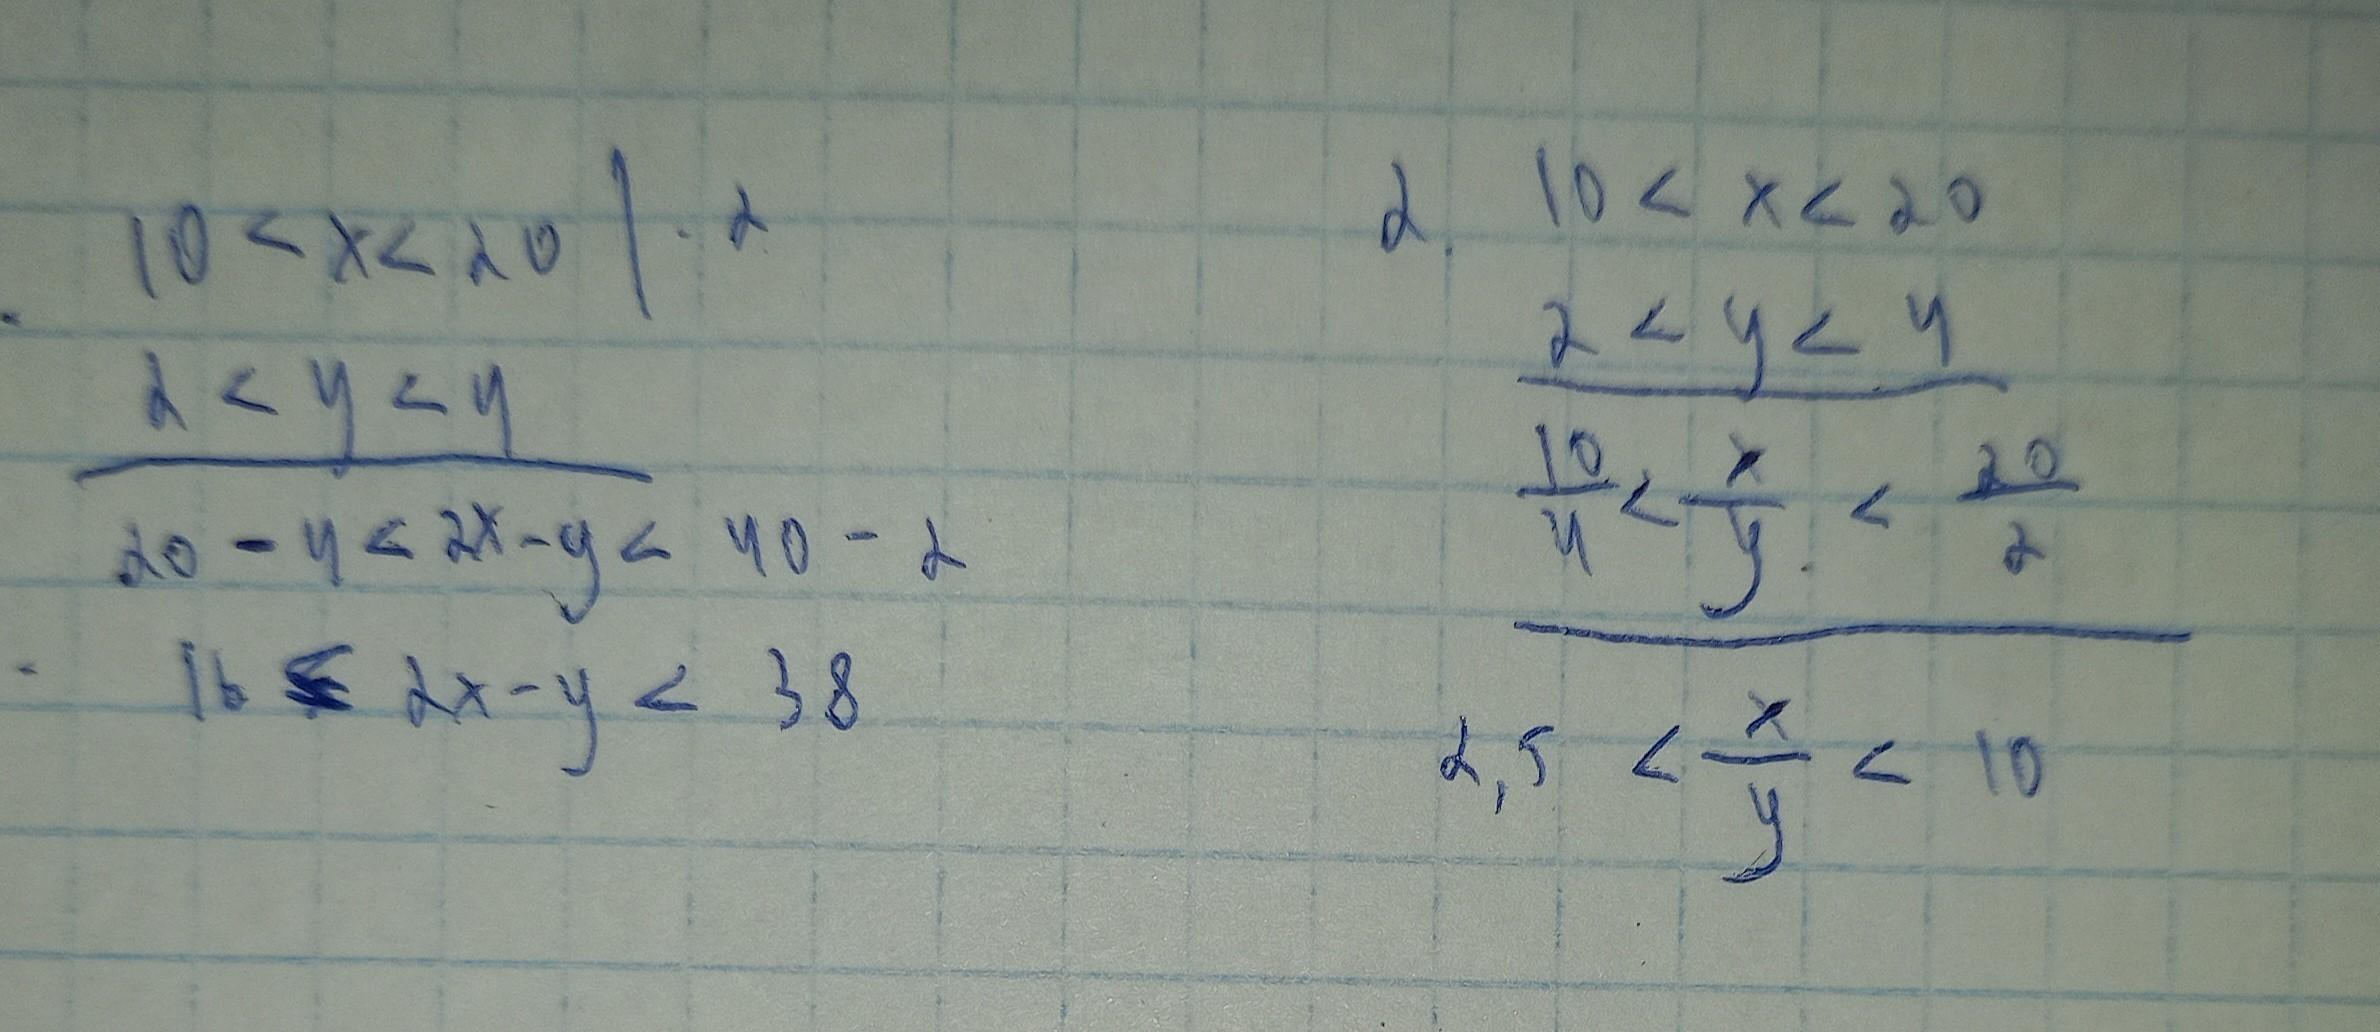 10 < x < 20 | · 2
2 < y < 4
20 - 4 < 2x - y < 40 - 2
16 < 2x - y < 38
2. 10 < x < 20
2 < y < 4
10/4 < x/y < 20/2
2,5 < x/y < 10